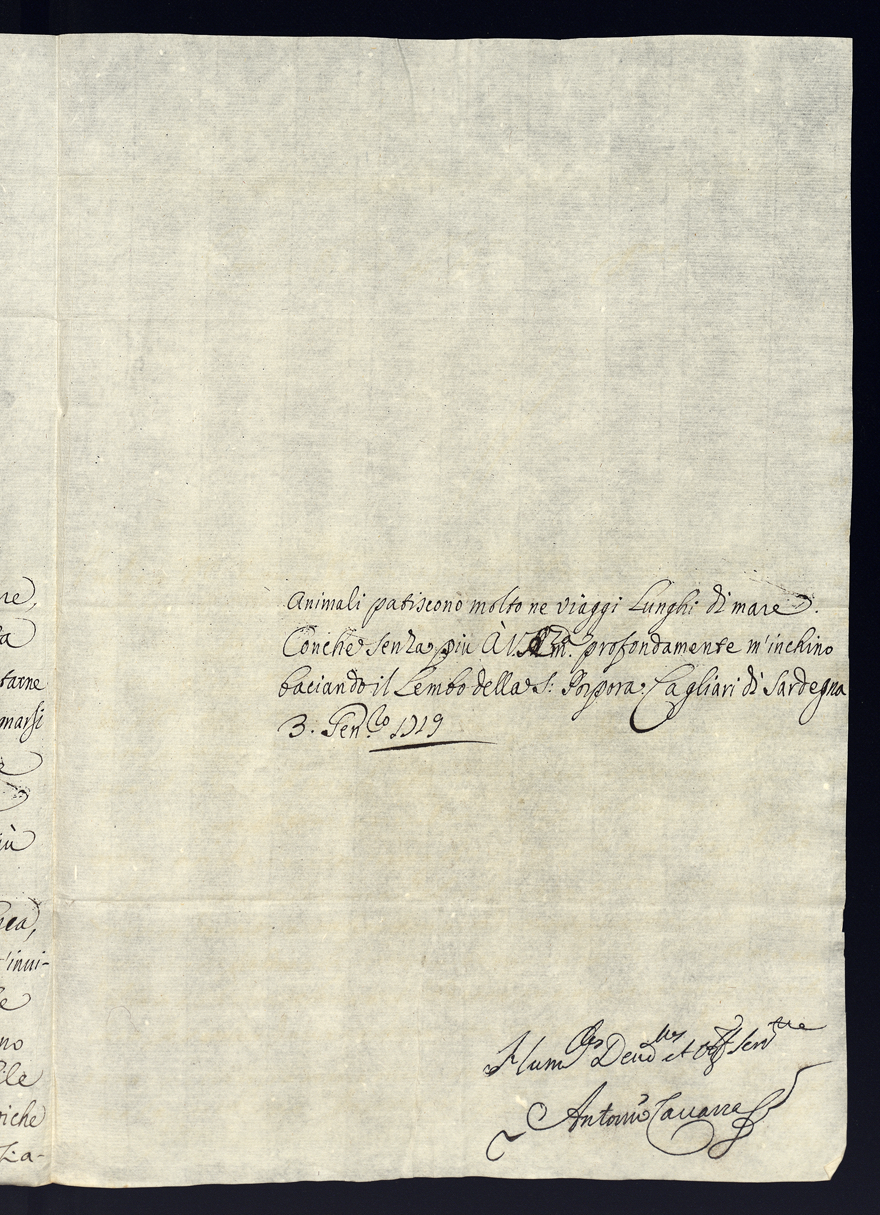 re,
ta
tarne
marsi
e
iù
hea,
t'inui-
le
no
bile
riche
Za-
Animali patiscono molto ne viaggi Lunghi di mare.
Conche senza piu À V. Em.ᶻᵃ profondamente m'inchino
baciando il Lembo della S: Porpora, Cagliari di Sardegna
3. Gen.ʳᵒ 1719
Hum Deuo et Seru
Antonio Cauarra